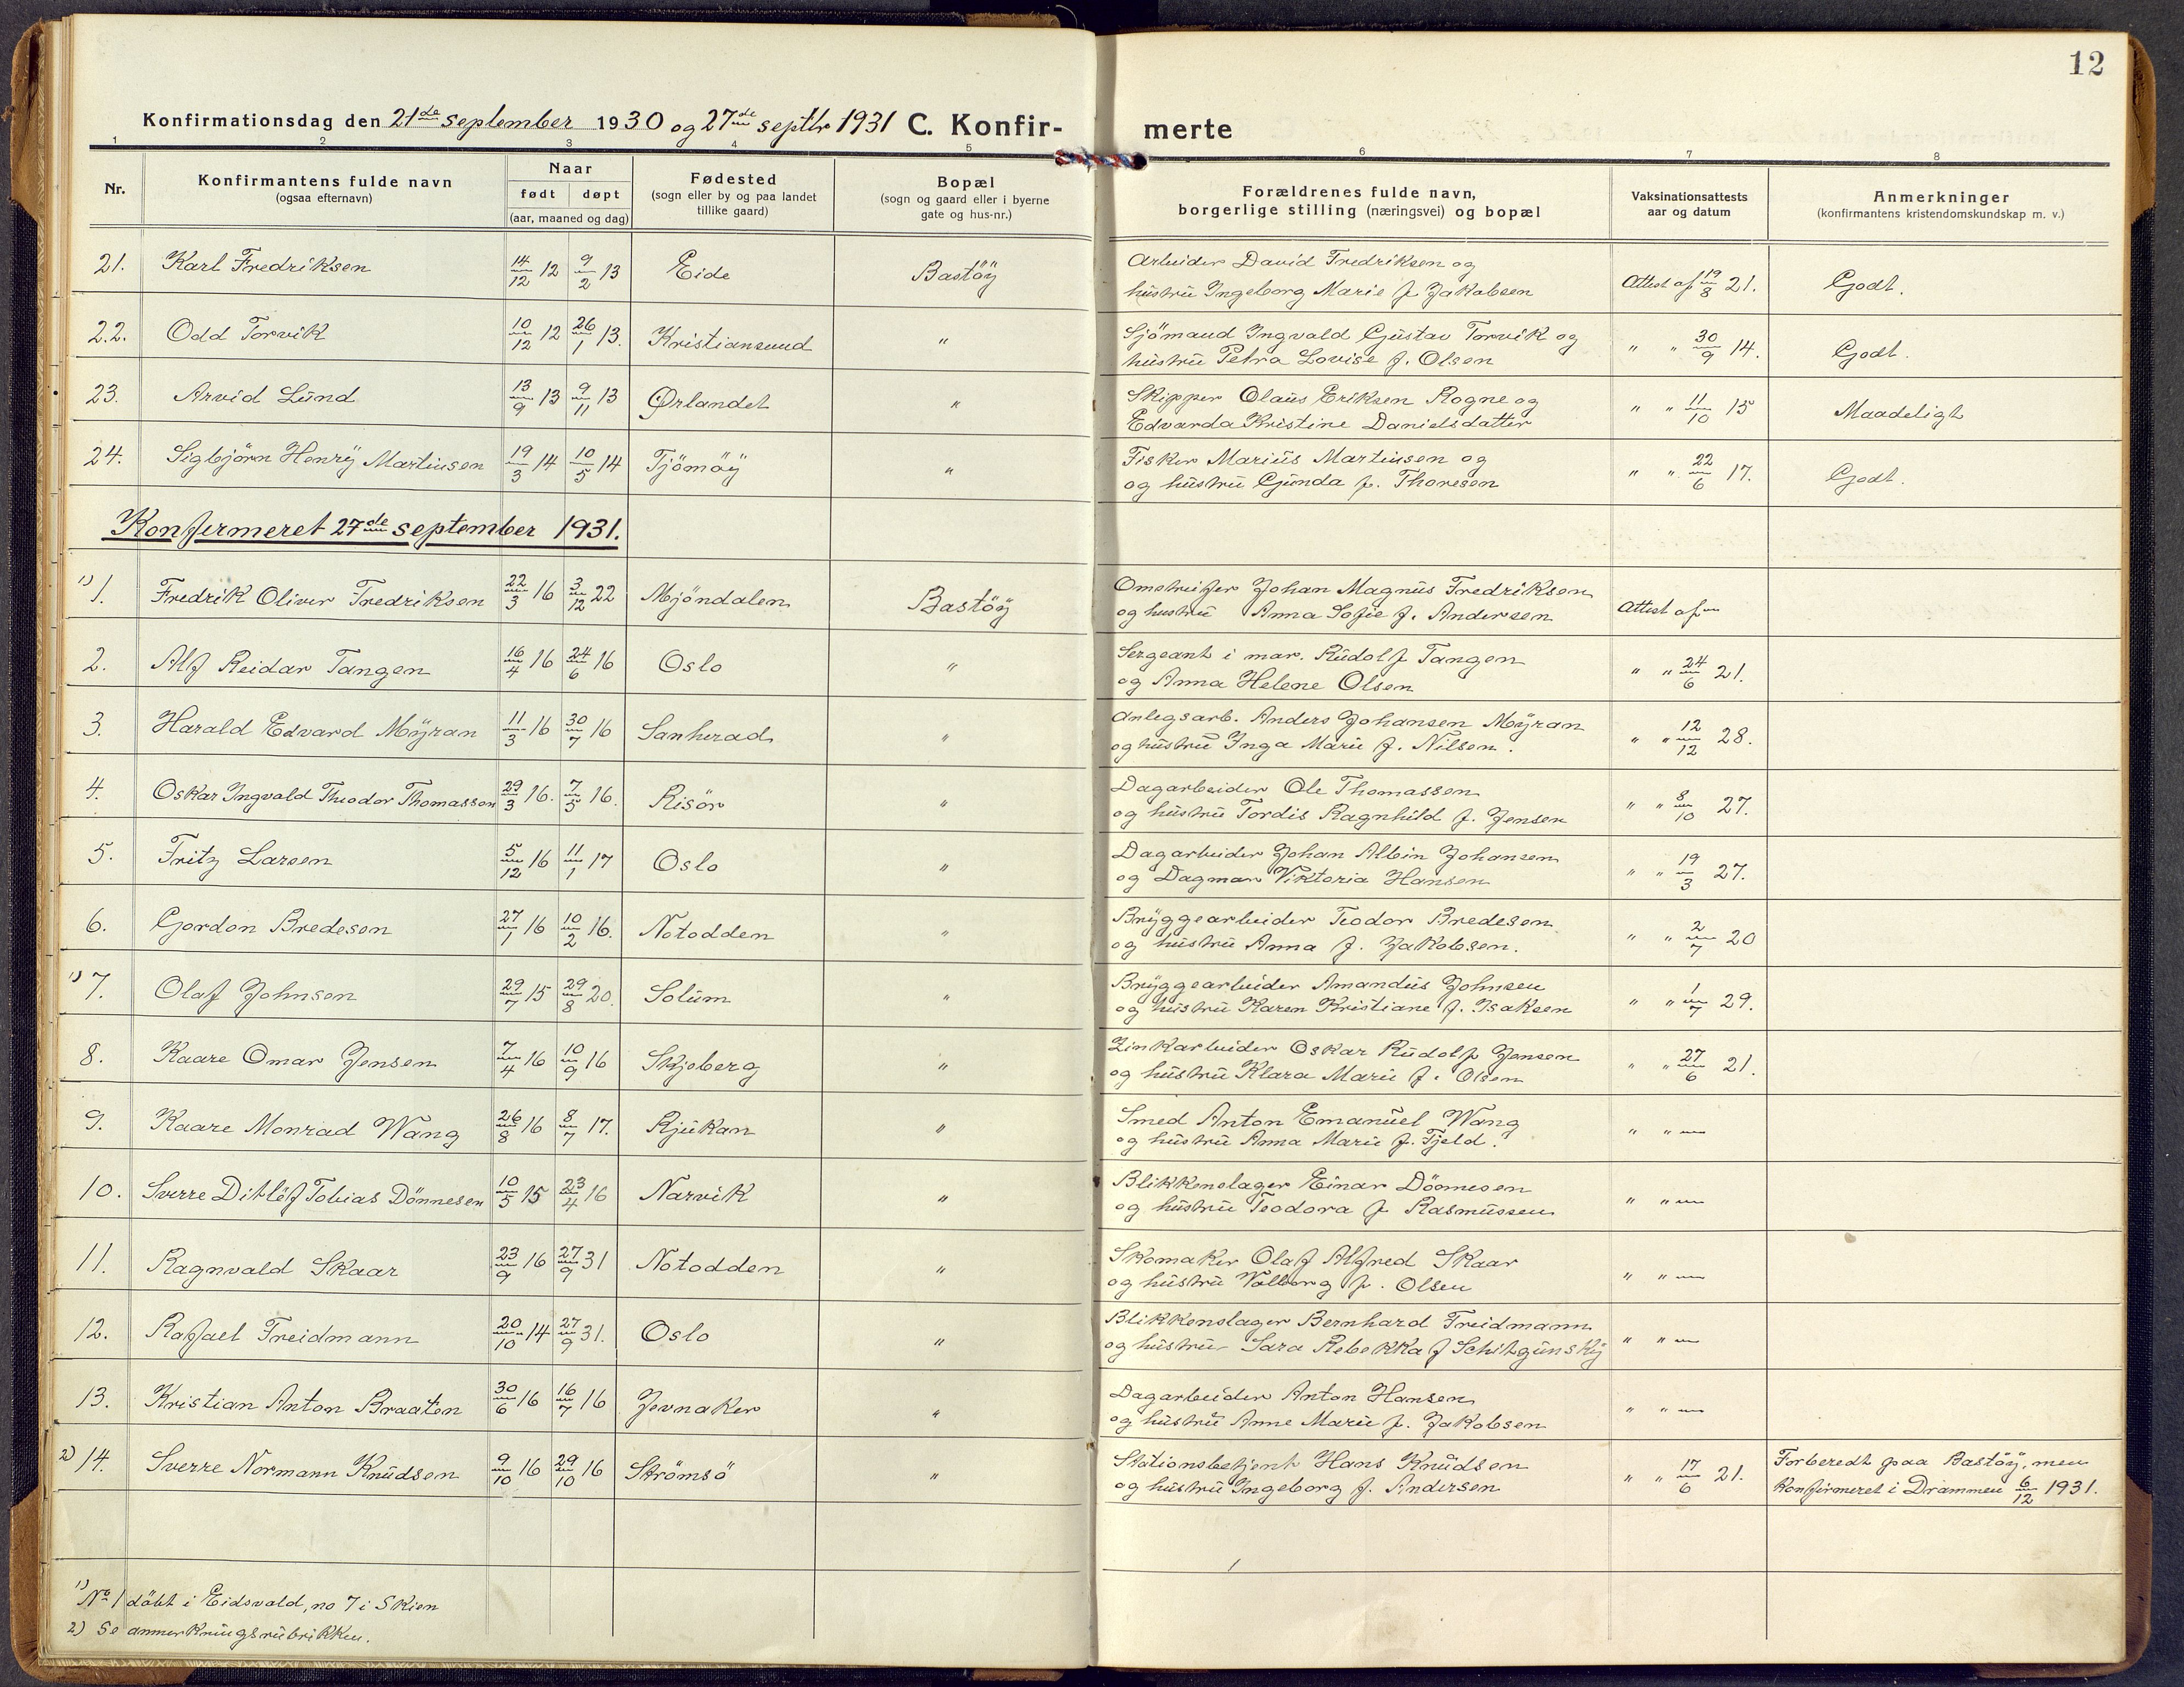 12
Konfirmationsdag den 21de september 1930 og 27de septbr 1931 C. Konfir- merte
1 2 3 4 5 6 7 8
Nr.
Konfirmantens fulde navn
(ogsaa efternavn)
Naar
født døpt
(aar, maaned og dag)
Fødested
(sogn eller by og paa landet
tillike gaard)
Bopæl
(sogn og gaard eller i byerne
gate og hus-nr.)
Forældrenes fulde navn,
borgerlige stilling (næringsvei) og bopæl
Vaksinationsattests
aar og datum
Anmerkninger
(konfirmantens kristendomskundskap m. v.)
21. Karl Fredriksen 14/12 12 9/2 13 Eide Bastöÿ Arbeider David Fredriksen og
hustru Ingeborg Marie f. Jakobsen Attest af 19/8 21. Godt.
22. Odd Torvik 10/12 12 26/1 13. Kristiansund " Sjömand Ingvald Gustav Torvik og
hustru Petra Lovise f. Olsen " " 30/9 14. Godt.
23. Arvid Lund 13/9 13 9/11 13 Ørlandet " Skipper Olaus Eriksen Rogne og
Edvarda Kristine Danielsdatter " " 11/10 15 Maadeligt
24. Sigbjörn Henrÿ Martinsen 19/3 14 10/5 14 Tjömöÿ " Fisker Marius Martinsen og
og hustru Gunda f. Thoresen " " 22/6 17. Godt.
Konfirmeret 27de september 1931.
1) 1. Fredrik Oliver Fredriksen 22/3 16 3/12 22 Mjöndalen Bastöÿ Omstreifer Johan Magnus Fredriksen
og hustru Anna Sofie f. Andersen Attest af
2. Alf Reidar Tangen 16/4 16 24/6 16 Oslo " Sergeant i mar. Rudolf Tangen
og Anna Helene Olsen " " 24/6 21.
3. Harald Edvard Mÿran 11/3 16 30/7 16 Sanherad " Anlegsarb. Anders Johansen Mÿran
og hustru Inga Marie f. Nilsen. " " 12/12 28.
4. Oskar Ingvald Theodor Thomassen 29/3 16. 7/5 16. Risör " Dagarbeider Ole Thomassen
og hustru Tordis Ragnhild f. Jensen " " 8/10 27.
5. Fritz Larsen 5/12 16 11/1 17 Oslo " Dagarbeider Johan Albin Johansen
og Dagmar Viktoria Hansen " " 19/3 27.
6. Gordon Bredesen 27/1 16 10/2 16. Notodden " Brÿggearbeider Teodor Bredesen
og hustru Anna f. Jakobsen. " " 2/7 20
1) 7. Olaf Johnsen 29/7 15 29/8 20. Solum " Brÿggearbeider Amandus Johnsen
og hustru Karen Kristiane f. Isaksen " " 1/7 29.
8. Kaare Omar Jensen 7/4 16 10/9 16 Skjeberg " Zinkarbeider Oskar Rudolf Jensen
og hustru Klara Marie f. Olsen " " 27/6 21.
9. Kaare Monrad Wang 26/8 16 8/7 17. Rjukan " Smed Anton Emanuel Wang
og hustru Anna Marie f. Fjeld. " "
10. Sverre Ditlöf Tobias Dönnesen 10/5 15 23/4 16 Narvik " Blikkenslager Einar Dönnesen
og hustru Teodora f Rasmussen " "
11. Ragnvald Skaar 23/9 16 27/9 31 Notodden " Skomaker Olaf Alfred Skaar
og hustru Valborg f. Olsen " "
12. Rafael Freidmann 20/10 14 27/9 31. Oslo " Blikkenslager Bernhard Freidmann
og hustru Sara Rebekka f Schitgunskÿ " "
13. Kristian Anton Braaten 30/6 16 16/7 16 Jevnaker " Dagarbeider Anton Hansen
og hustru Anne Marie f. Jakobsen " "
2) 14. Sverre Normann Knudsen 9/10 16 29/10 16 Strömsö " Stationsbetjent Hans Knudsen
og hustru Ingeborg f. Andersen " " 17/6 21. Forberedt paa Bastöÿ, men
Konfirmeret i Drammen 6/12 1931.
1) No 1 döbt i Eidsvold, no 7 i Skien
2) Se anmerkningsrubrikken.